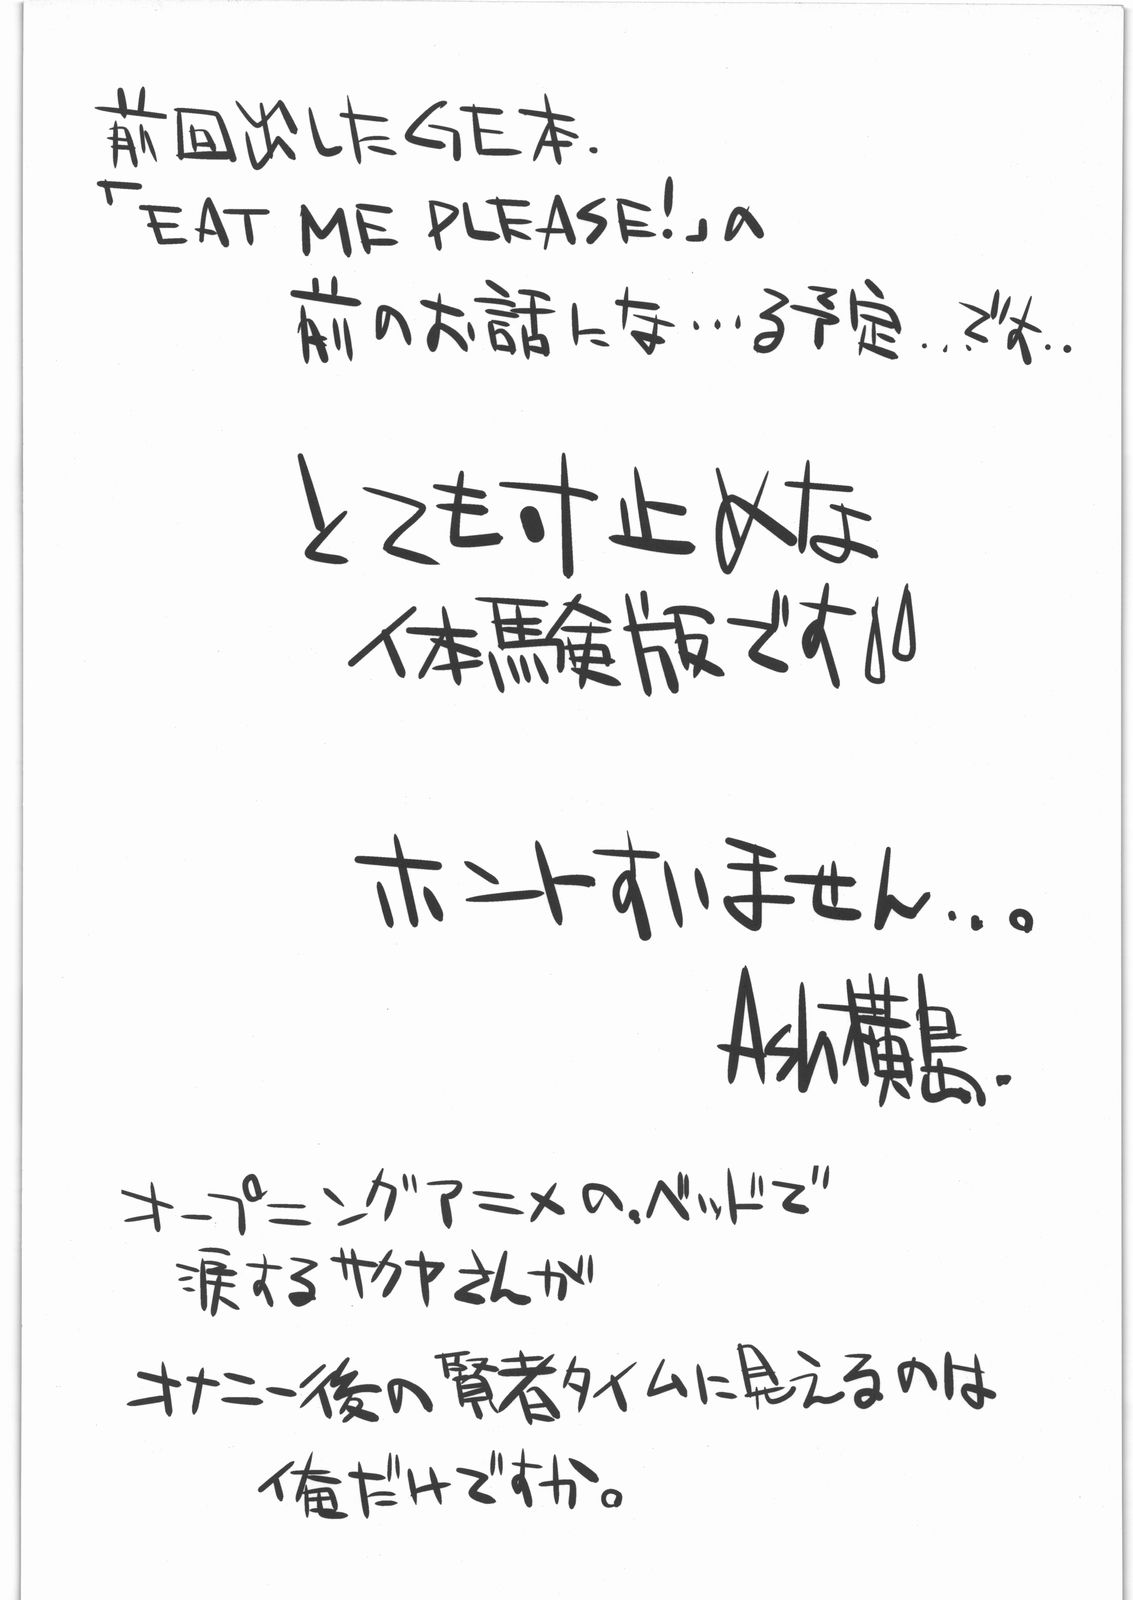 前回出したGE本.
「EAT ME PLEASE!」の
前のお話にな…る予定...です..
とても寸止めな
体験版です
ホントすいません...。
Ash横島.
オープニングアニメの.ベッドで
涙するサクヤさんが
オナニー後の賢者タイムに見えるのは
俺だけですか。